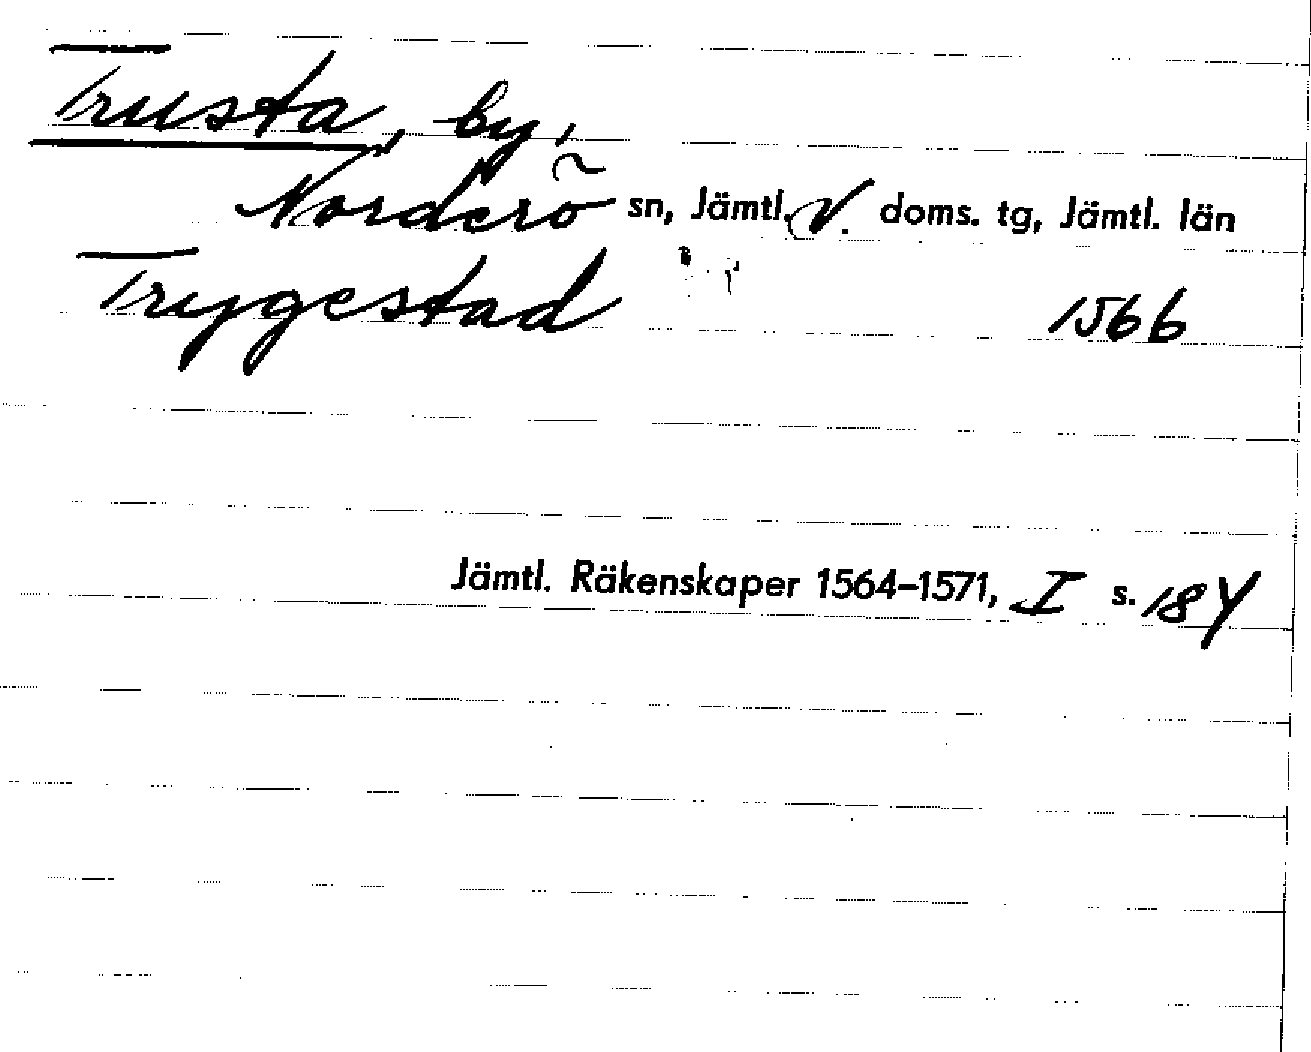 Trusta, by,
Norderö sn, Jämtl. V. doms. tg, Jämtl. län
Trygestad 1566
Jämtl. Räkenskaper 1564–1571, I s. 184